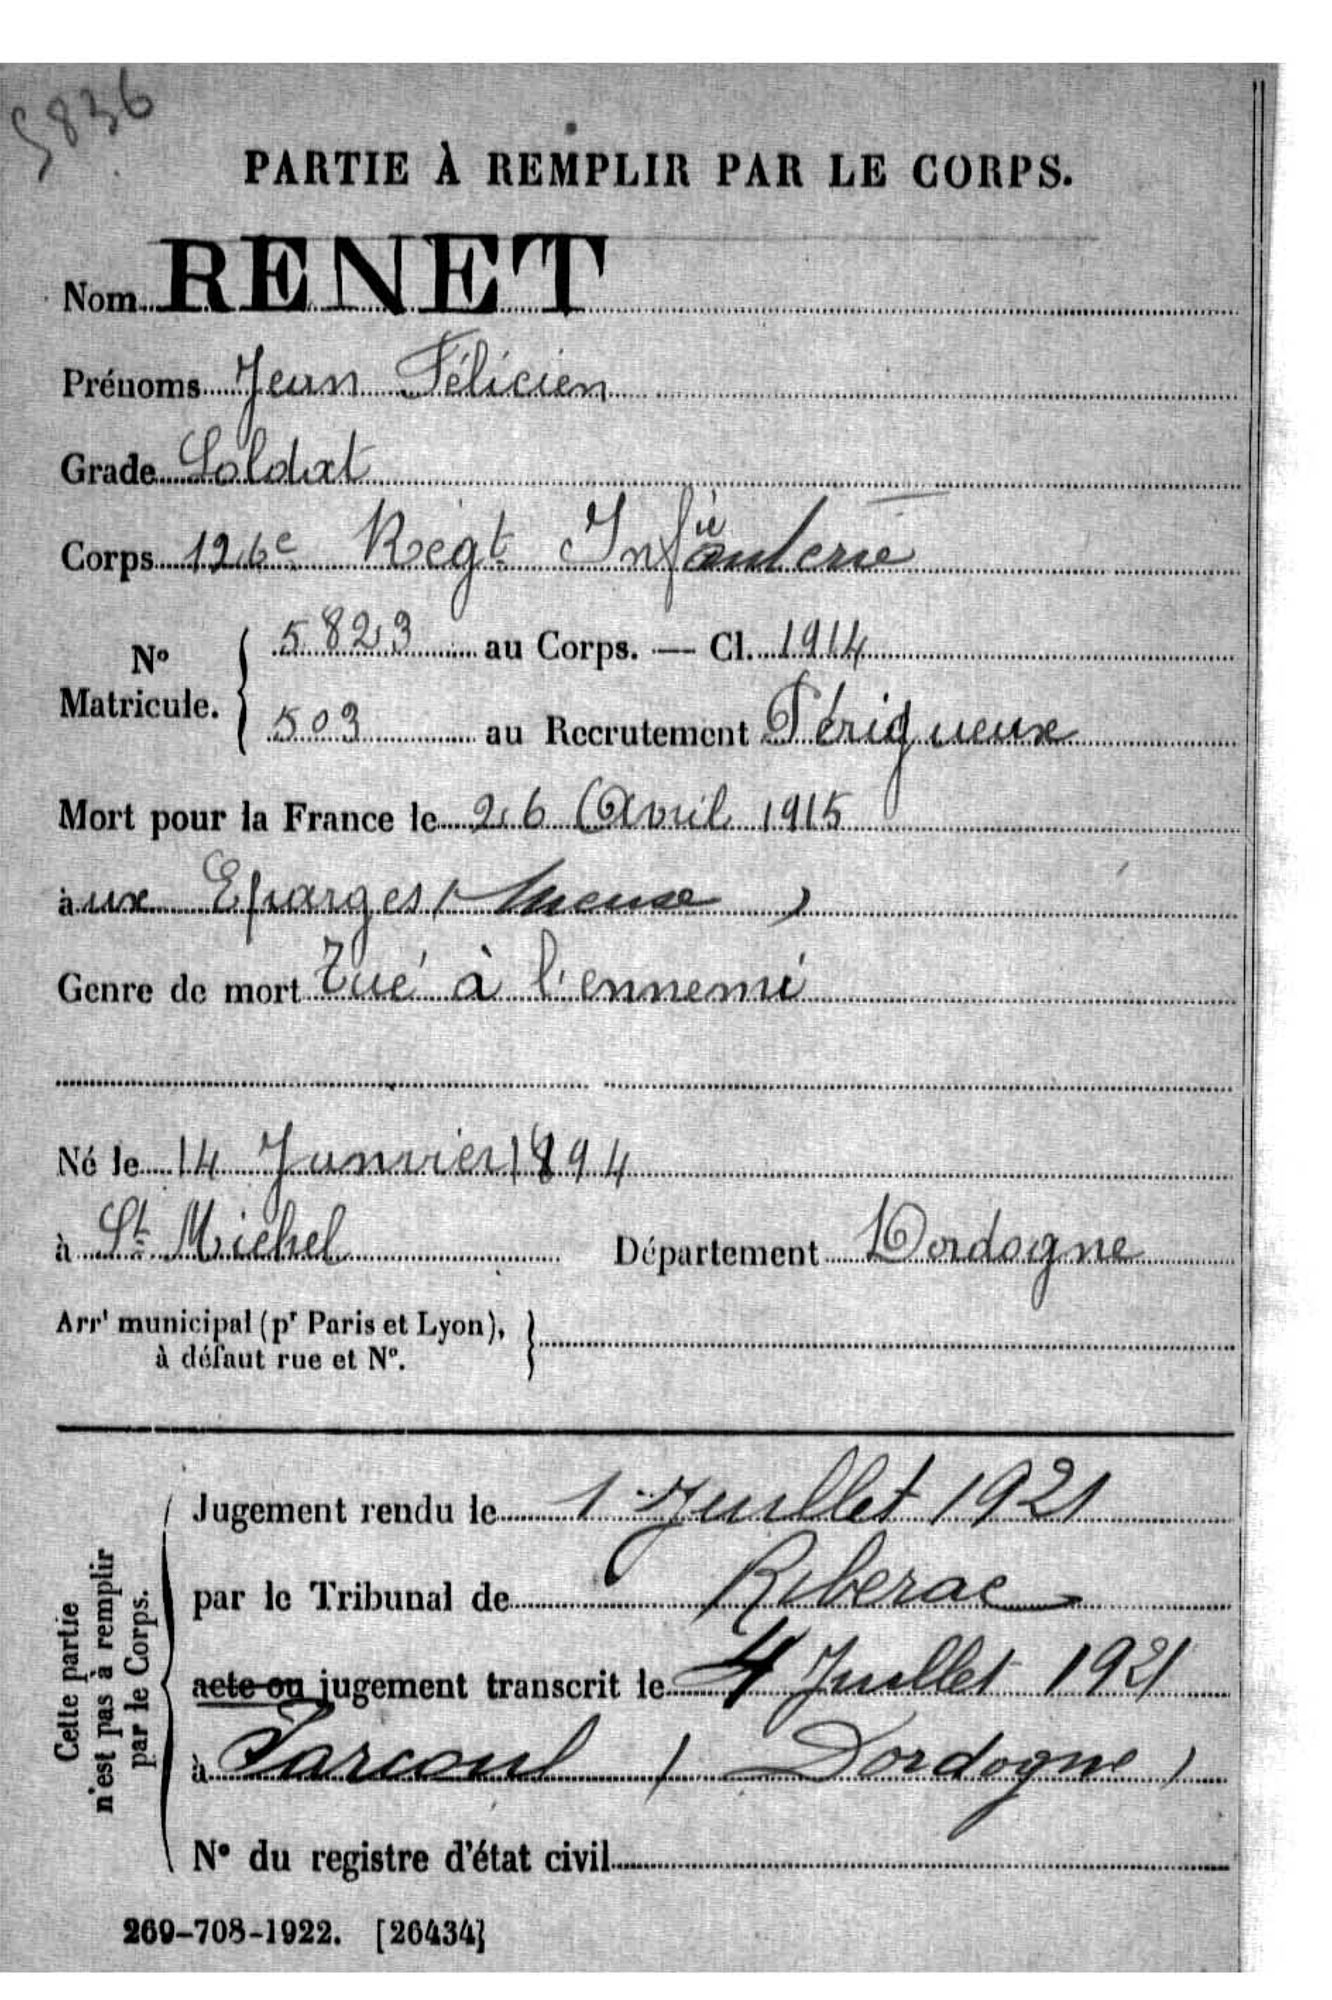 5836
PARTIE À REMPLIR PAR LE CORPS.
Nom RENET
Prénoms Jean Félicien
Grade Soldat
Corps 126e Régt Infanterie
No Matricule. { 5823 au Corps. — Cl. 1914
503 au Recrutement Périgueux
Mort pour la France le 26 Avril 1915
aux Eparges (Meuse)
Genre de mort Tué à l'ennemi
Né le 14 Janvier 1894
à St Michel Département Dordogne
Arrt municipal (pr Paris et Lyon),
à défaut rue et No. }
Cette partie
n'est pas à remplir
par le Corps.
Jugement rendu le 1 Juillet 1921
par le Tribunal de Riberac
acte ou jugement transcrit le 4 Juillet 1921
à Parcoul (Dordogne)
No du registre d'état civil
269-708-1922. [26434]